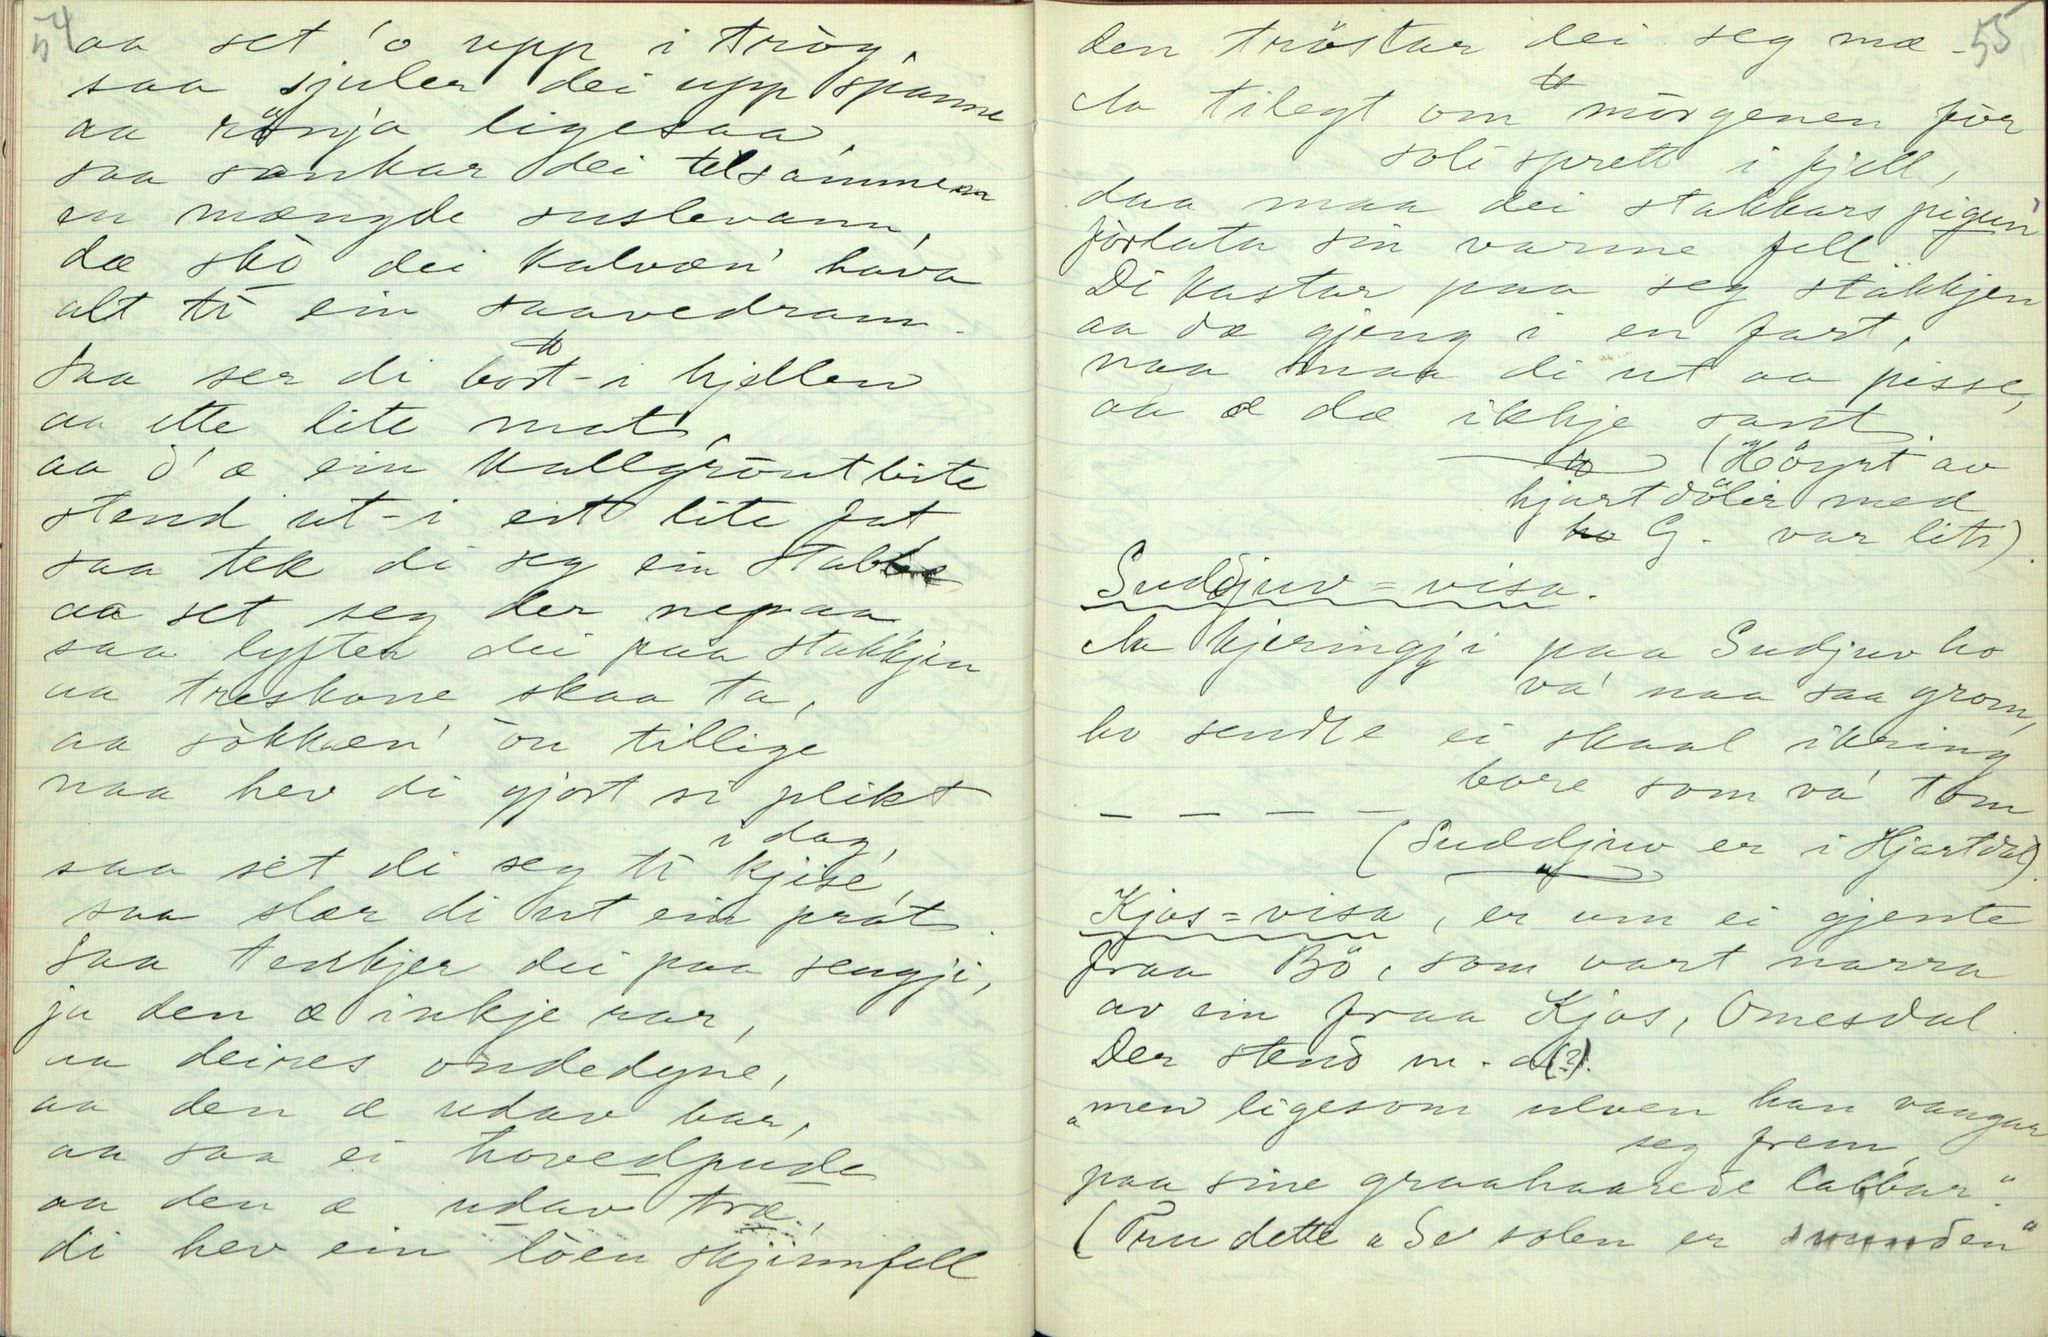 54
aa set 'o upp i tròg,
saa sjuler dei upp spanne
aa rönja ligesaa,
saa sankar dei telsammen
en mængde suslevann,
dæ skò dei kalvæn' hava
alt ti ein saavedram.
Saa ser di bort-i hjellen
aa ette lite mat,
aa ò' æ ein kallgrautbite
stend ut-i eit lite fat
saa tek di seg ein stabbe
aa set seg der nepaa,
saa lyfter dei paa stakkjen
aa treskone skaa ta,
aa sòkkæn' òn tillige
naa hev di gjort si plikt
i dag,
saa set di seg ti kjisé,
saa slær di ut ein prat.
Saa tenkjer dei paa sengji,
ja den æ inkje rar,
aa deires ondedyne,
aa den æ udav bar,
aa saa ei hovedpude
aa den æ udav træ,
di hev ein lòen skjinnfell
55
den tröstar dei seg mæ-
Aa tilegt om mòrgenen för
soli sprett i fjell,
daa maa dei stakkars pigun'
förlata sin varme fell
Di kastar paa seg stakkjen
aa dæ gjeng i en fart,
naa maa di ut aa pisse,
aa æ dæ ikkje sant.
(Höyrt av
hjartdölir med
G. var liti).
Sudjuv=visa.
Aa kjeringji paa Sudjuv ho
va' naa saa grom,
ho sendte ei skaal ikring
bare som va' tom
– – – –
(Suddjuv er i Hjartdal).
Kjos=visa, er um ei gjente
fraa Bö, som vart narra
av ein fraa Kjos, Omesdal.
Der stend m. a(?).
"men ligesom ulven han vangar
seg frem
paa sine graahaarede labbar."
(Tru dette "Se solen er svunden"